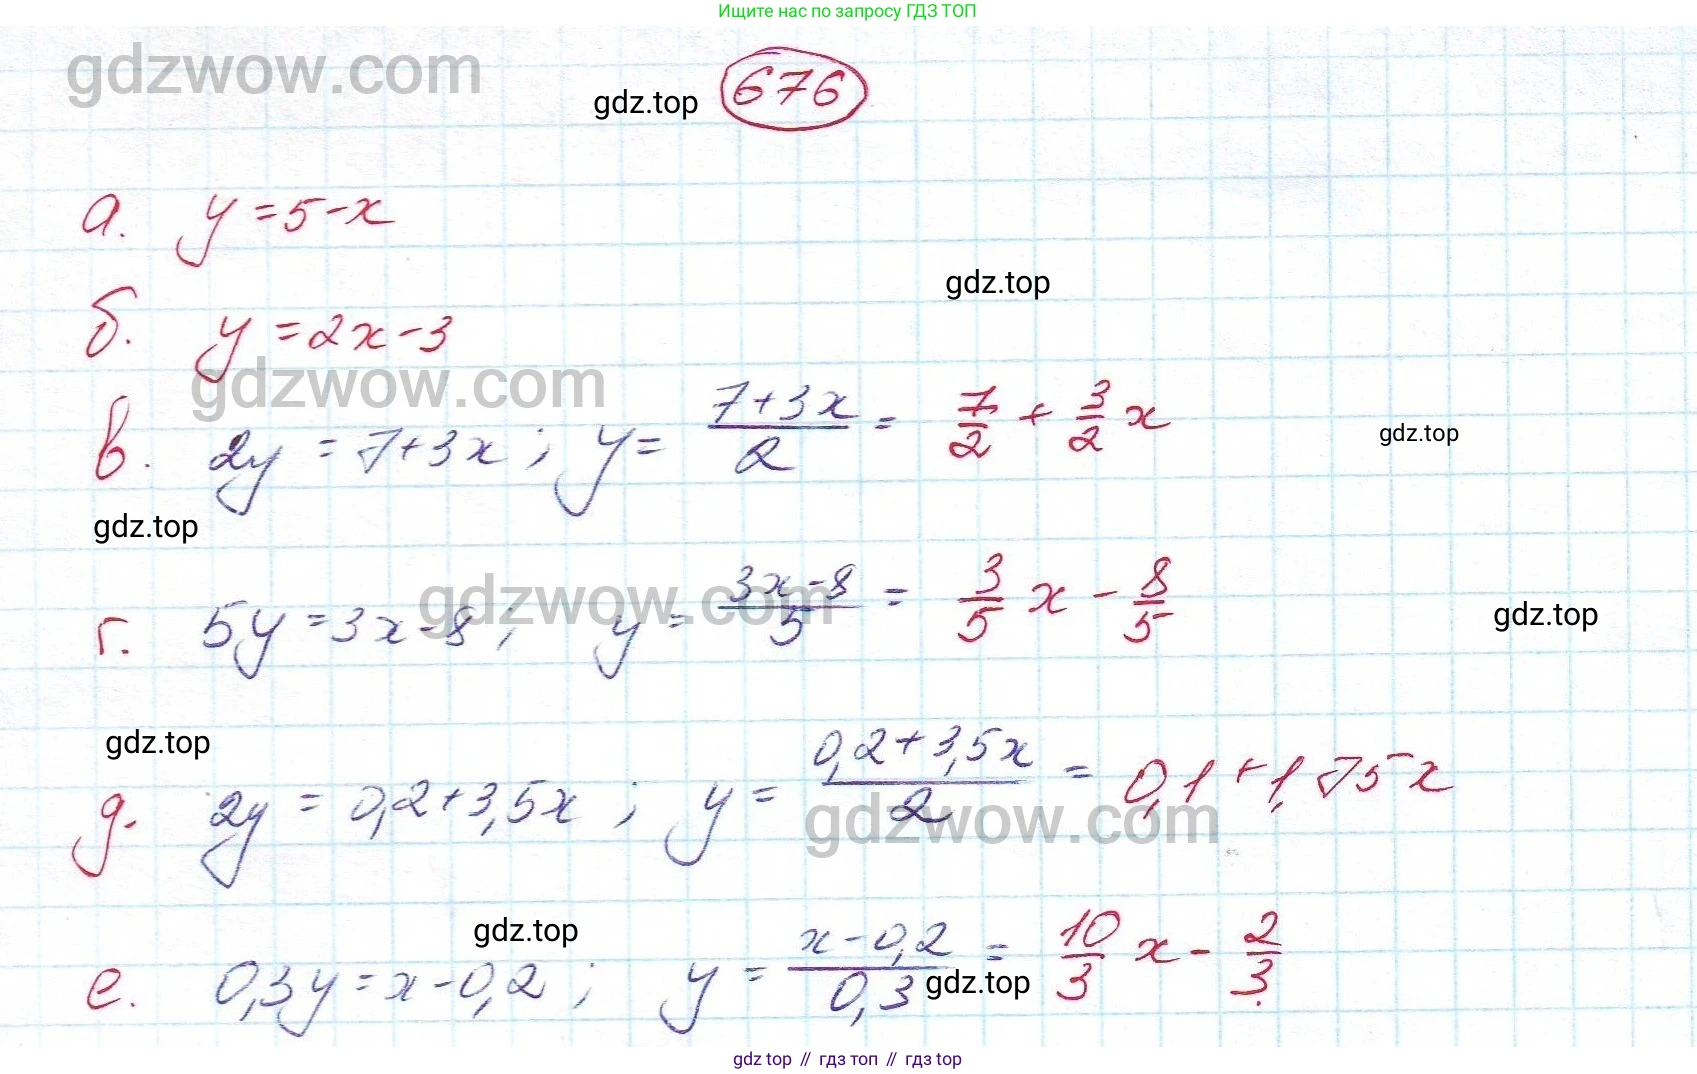 Ищите нас по запросу ГДЗ ТОП
gdzwow.com
gdz.top
676
а. y = 5 - x
gdz.top
б. y = 2x - 3
gdzwow.com
в. 2y = 7 + 3x ; y = (7 + 3x)/2 = 7/2 + 3/2 x
gdz.top
gdz.top
г. 5y = 3x - 8 ; y = (3x - 8)/5 = 3/5 x - 8/5
gdzwow.com
gdz.top
gdz.top
д. 2y = 0,2 + 3,5x ; y = (0,2 + 3,5x)/2 = 0,1 + 1,75x
gdzwow.com
gdz.top
е. 0,3y = x - 0,2 ; y = (x - 0,2)/0,3 = 10/3 x - 2/3.
gdz.top
gdz top // гдз топ // гдз top